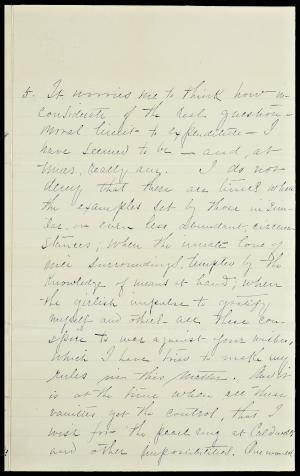 5. It worries me to think how in-
considerate of the real question -
moral limit to expenditure - I
have seemed to be - and, at
times, really am. I do not
deny that there are times when
the examples set by those in sim-
ilar, or even less, abundant, circum-
stances; when the innate love of
nice surroundings, tempted by the
knowledge of means at hand; when
the girlish impulse to gratify
myself and others all these con-
spire to war against your wishes,
which I have tried to make my
rules in this matter. And it
is at the time when all these
vanities get the control, that I
wish for the pearl ring at Caldwell's
and other impossibilities. One moment